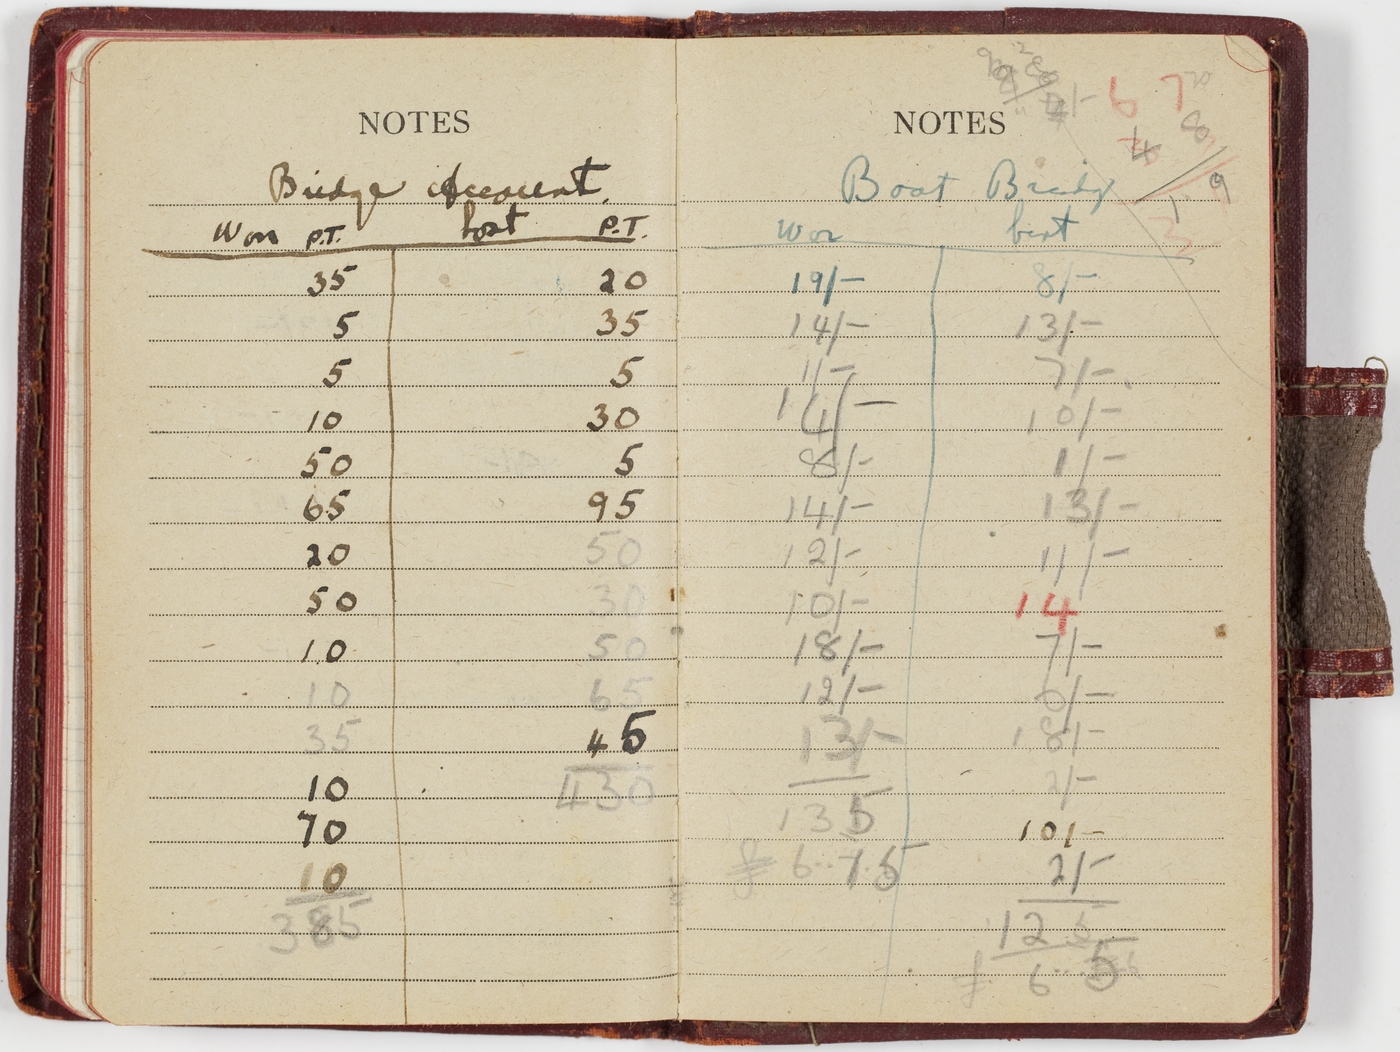 NOTES
Bridge Account.
Won P.T. Lost P.T.
35 20
5 35
5 5
10 30
50 5
65 95
20 50
50 30
10 50
10 65
35 45
10 430
70
10
385
6 7
NOTES
Boat Bridge
Won Lost
19/- 8/-
14/- 13/-
1/- 7/-.
14/- 10/-
8/- 1/-
14/- 13/-
12/- 11/-
10/- 14
18/- 7/-
12/- 0/-
13/- 18/-
135 2/-
£ 6.. 15 10/-
2/-
125
£ 6.. 5